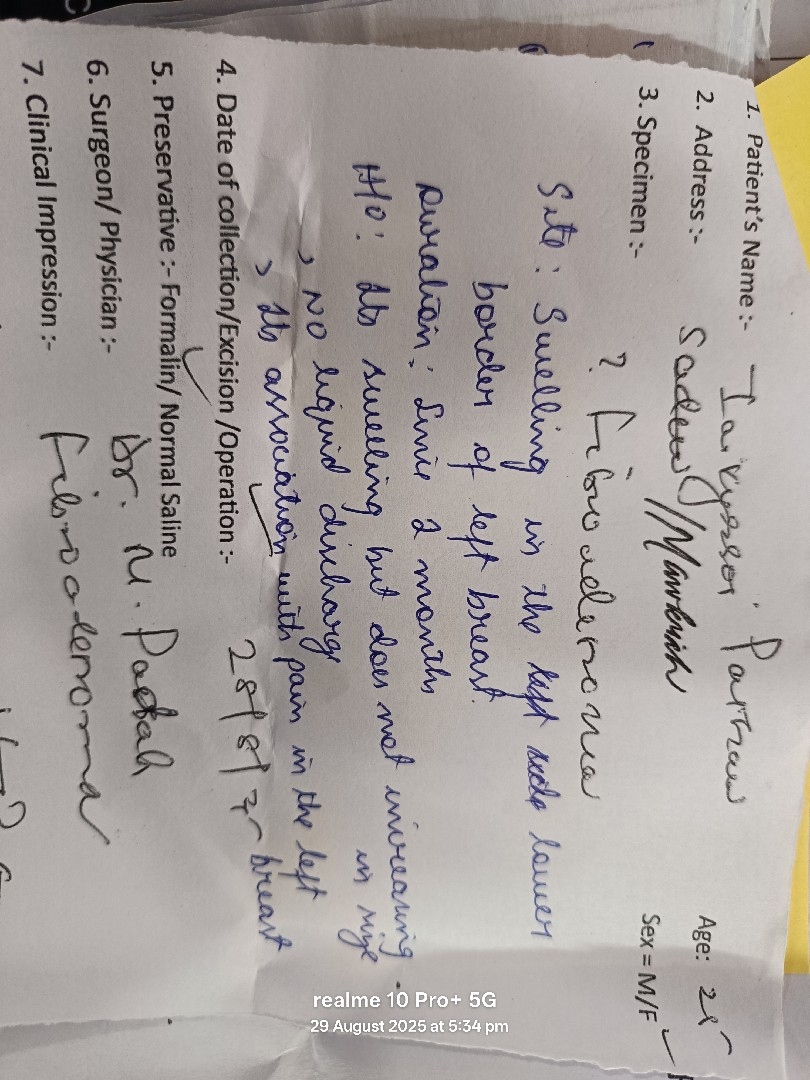 1. Patient's Name :-
Age:
2. Address :-
Sex = M/F
3. Specimen :- ? Fibroadenoma
Site: Swelling in the left side lower
border of left breast.
Duration: Since 2 months
H/O: Its swelling but does not increasing
in size
, NO liquid discharge
, Its association with pain in the left
breast
4. Date of collection/Excision /Operation :- 28/8/25
5. Preservative :- Formalin/ Normal Saline
6. Surgeon/ Physician :- Dr. N.
7. Clinical Impression :- Fibroadenoma
realme 10 Pro+ 5G
29 August 2025 at 5:34 pm